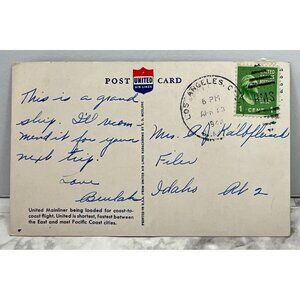 POST CARD
UNITED
AIR LINES
LOS ANGELES, C
6 PM
APR
1 CENT
This is a grand
ship. I'll recom
mend it for your
next trip.
Love
Beulah
Mrs. A. J. Kalbfleisch
Filer
Idaho Rt 2
United Mainliner being loaded for coast-to-
coast flight. United is shortest, fastest between
the East and most Pacific Coast cities.